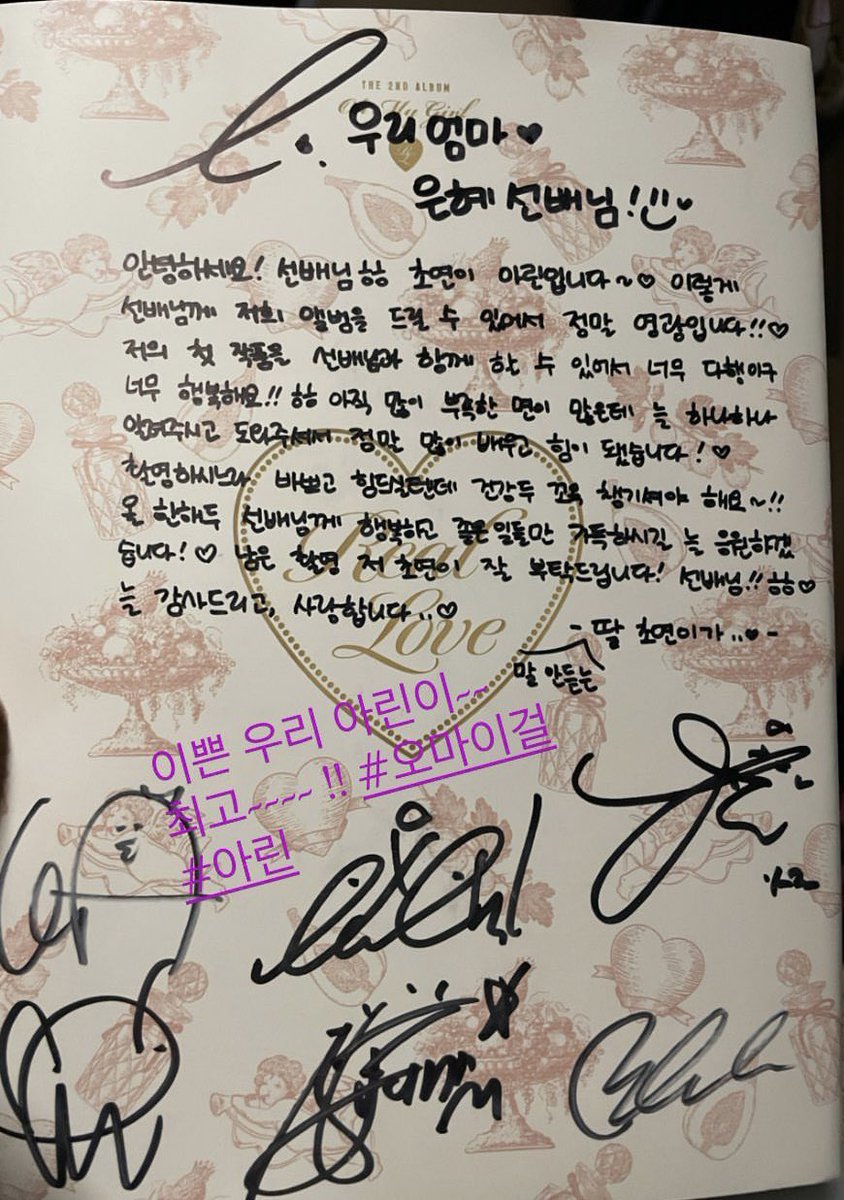 THE 2ND ALBUM
Oh My Girl
우리 엄마♥
은혜 선배님!
안녕하세요! 선배님ㅎㅎ 초연이 아린입니다~♡ 이렇게
선배님께 저희 앨범을 드릴 수 있어서 정말 영광입니다!!♡
저의 첫 작품을 선배님과 함께 할 수 있어서 너무 다행이구
너무 행복해요!! ㅎㅎ 아직 많이 부족한 면이 많은데 늘 하나하나
알려주시고 도와주셔서 정말 많이 배우고 힘이 됐습니다!♡
촬영하시느라 바쁘고 힘드실텐데 건강두 꼬옥 챙기셔야 해요~!!
올 한해두 선배님께 행복하고 좋은 일들만 가득하시길 늘 응원하겠
습니다!♡ 남은 촬영 저 초연이 잘 부탁드립니다! 선배님!! ㅎㅎ♡
늘 감사드리고, 사랑합니다..♡
- 딸 초연이가..♥ -
말 안듣는
Real
Love
이쁜 우리 아린이~~
최고~~~~ !! #오마이걸
#아린